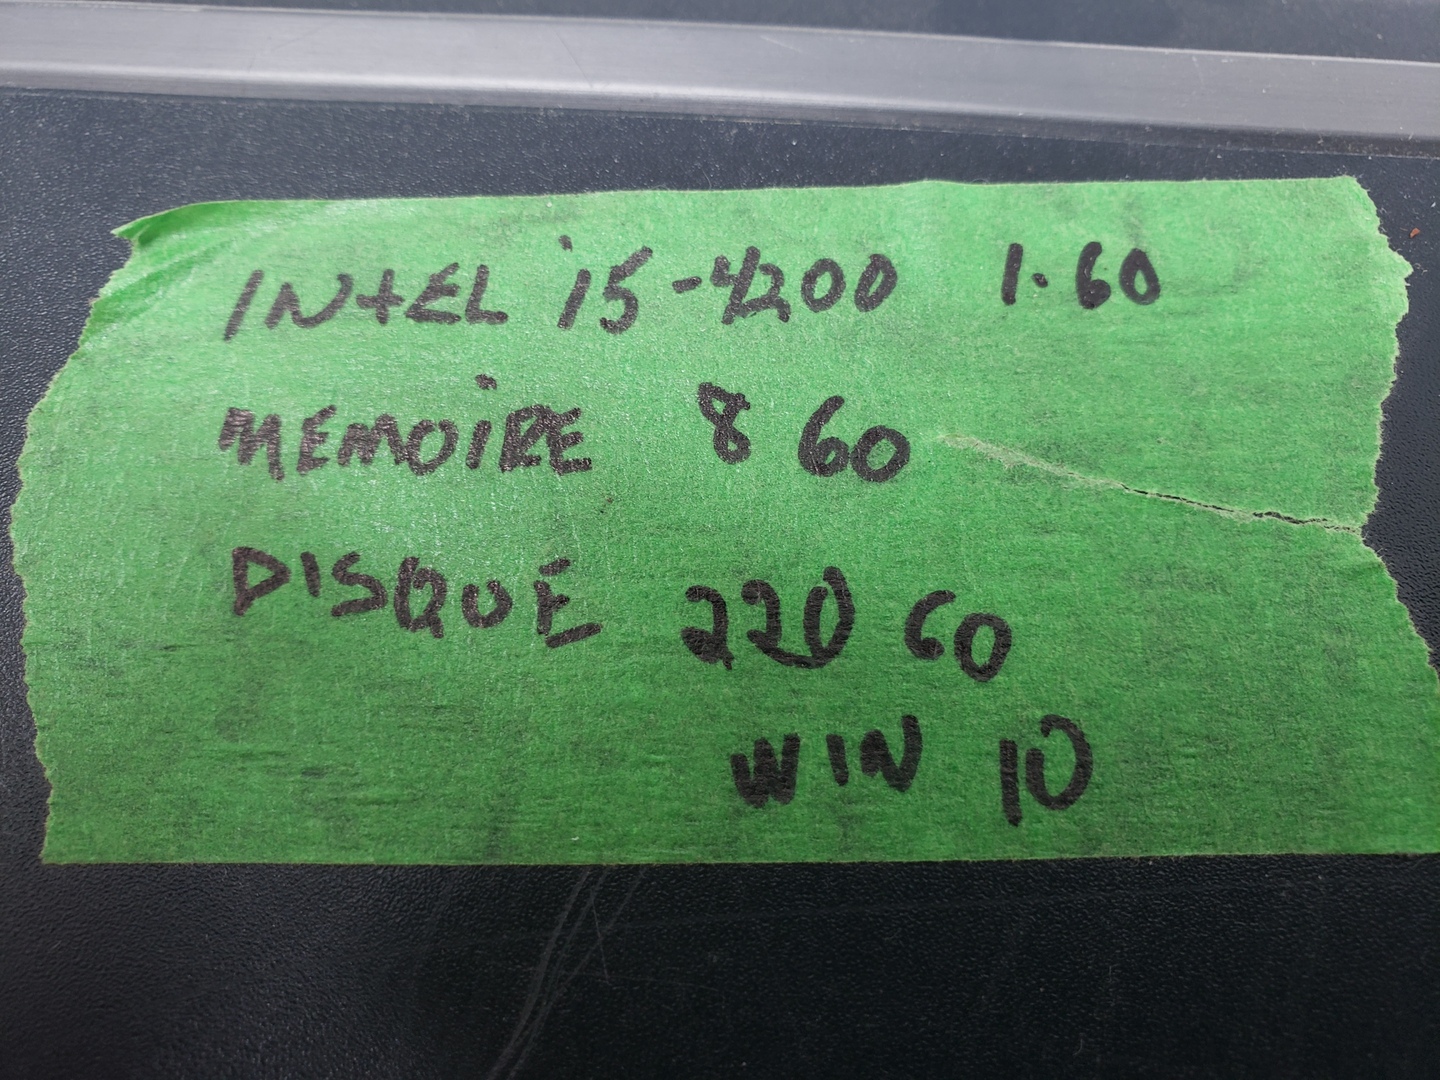 INTEL i5-4200 1.60
MEMOiRE 8 GO
DISQUE 220 GO
WIN 10